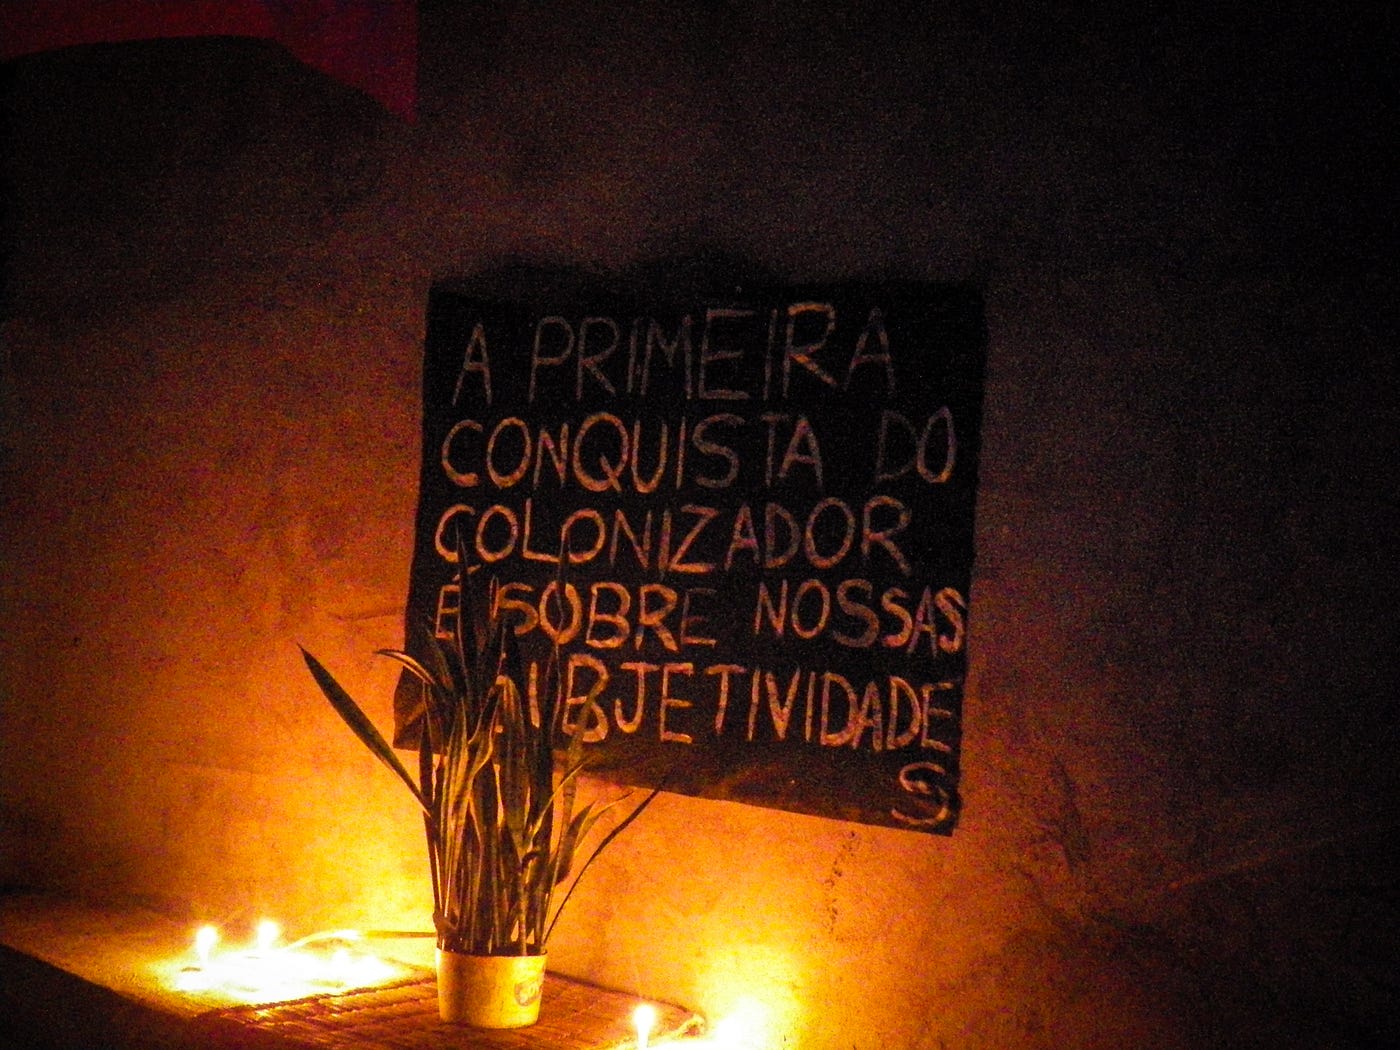 A PRIMEIRA
CONQUISTA DO
COLONIZADOR
É SOBRE NOSSAS
SUBJETIVIDADE
S